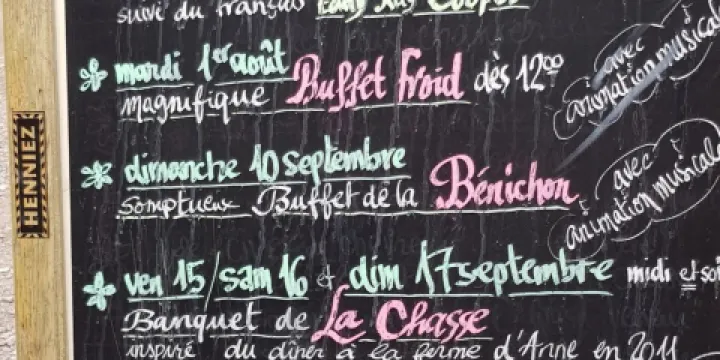 suivi du français Eddy Ray Cooper
* mardi 1er août
magnifique Buffet froid dès 12°°
avec
animation musicale
* dimanche 10 septembre
somptueux Buffet de la Bénichon
avec
animation musicale
* ven 15/sam 16 et dim 17 septembre midi et soi
Banquet de La Chasse
inspiré du dîner à la ferme d'Anne en 2011
HENNIEZ